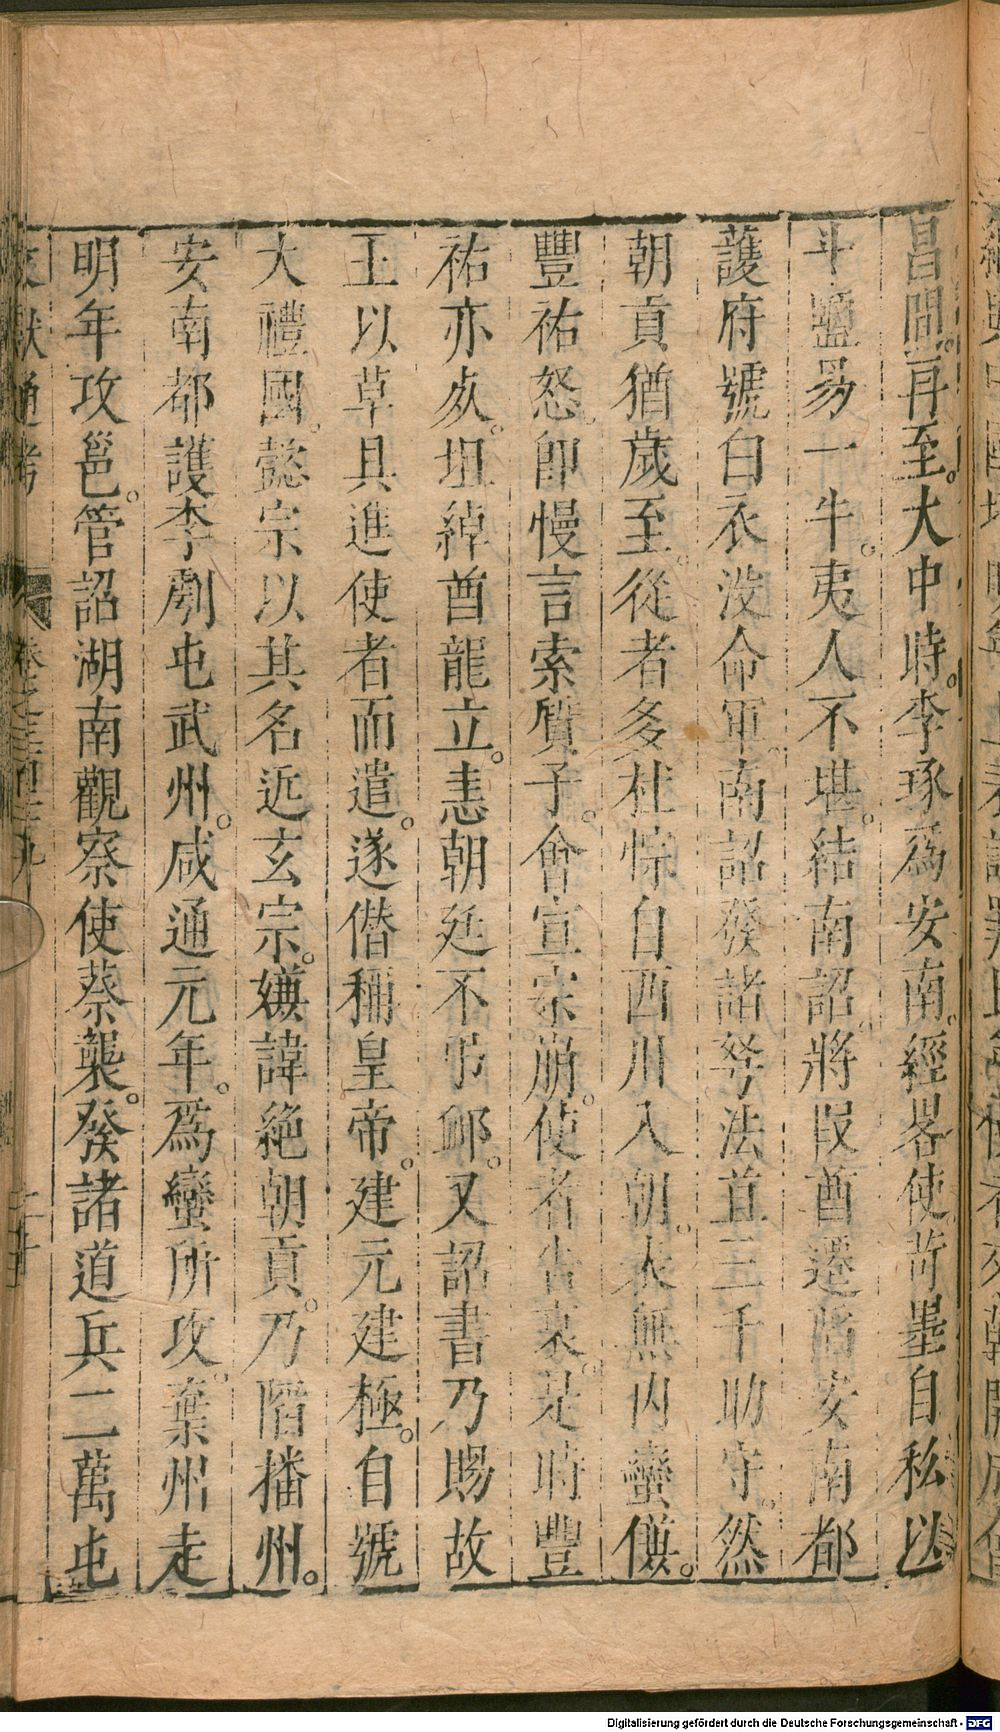 昌間。再至。大中時。李琢爲安南。經畧使。苛墨自私以
斗鹽易一牛。夷人不堪。結南詔。將叚酋遷陷安南都
護府號白衣没命軍。南詔發諸弩法直三千助守。然
朝貢猶歲至。從者多杜悰自西川入朝。表無内蠻傔。
豐祐怒。卽慢言索質子。會宣宗崩。使者告哀。是時豐
祐亦死。坦綽酋龍立。恚朝廷不弔䘏。又詔書乃賜故
王以草具進使者而遣。遂僣稱皇帝。建元建極。自號
大禮國。懿宗以其名近玄宗。嫌諱絶朝貢。乃陷播州。
安南都護李鄠屯武州。咸通元年。爲蠻所攻。棄州走
明年攻邕。管詔湖南觀察使蔡襲。發諸道兵二萬屯
文獻通考
卷之三百二十九
二十
Digitalisierung gefördert durch die Deutsche Forschungsgemeinschaft - DFG